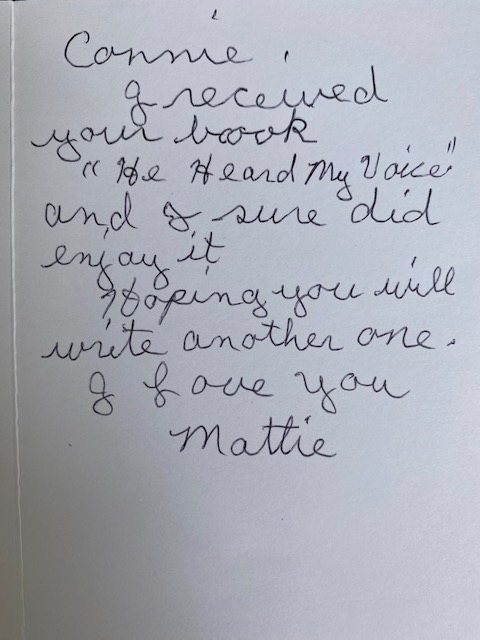 Connie,
I received
your book
"He Heard My Voice"
and I sure did
enjoy it
Hoping you will
write another one.
I Love you
Mattie